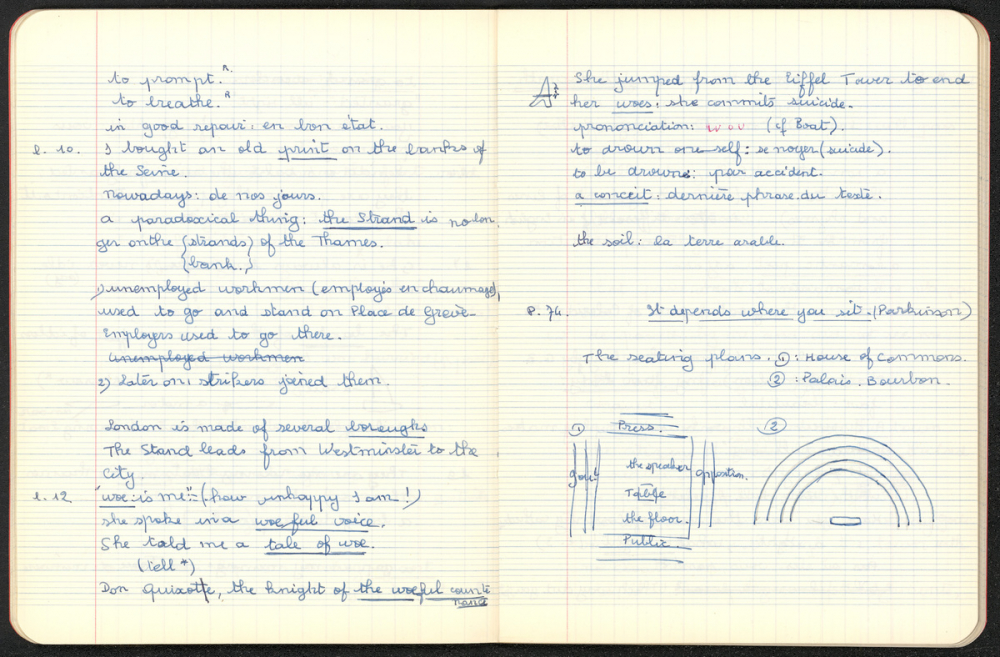 to prompt. R.
to breathe. R
in good repair: en bon état.
l. 10. I bought an old print on the banks of
the Seine.
nowadays: de nos jours.
a paradoxical thing: the Strand is no lon
ger on the (strands) of the Thames.
(bank.)
1) unemployed workmen (employés en chaumage)
used to go and stand on Place de Grève.
Employers used to go there.
unemployed workmen
2) later on, strikers joined them.
London is made of several boroughs
The Stand leads from Westminster to the
City.
l. 12 "woe is me" = (how unhappy I am!)
she spoke in a woeful voice.
She tald me a tale of woe.
(tell *)
Don Quixotte, the knight of the woeful counte
nance
She jumped from the Eiffel Tower to end
her woes: she commits suicide.
prononciation: (cf Boat).
to drown one self: se noyer (suicide).
to be drown: par accident.
a conceit: dernière phrase du texte.
the soil: la terre arable.
P. 74. It depends where you sit. (Parkinson)
The seating plans. ①: House of Commons.
②: Palais. Bourbon.
① Press. ②
gout opposition.
the speaker
Table
the floor.
Public.